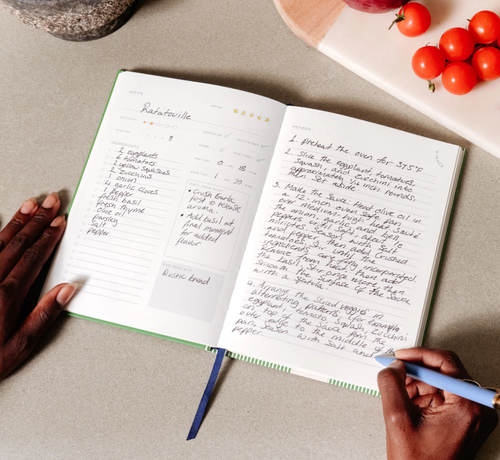 Ratatouille
8
0 18
1 30
2 eggplants
6 tomatoes
2 yellow squashes
2 zucchinis
1 onion
4 garlic cloves
1 pepper
fresh basil
fresh thyme
olive oil
parsley
salt
pepper
• Crush Garlic
first to release
aroma.
• Add basil at
final moment
for added
flavor
Rustic bread
1. Preheat the oven for 375°F
2. Slice the eggplant, tomatoes,
squash, and zucchini into
approximately 1/4 inch rounds,
then set aside
3. Make the sauce. Heat olive oil in
a 12-inch oven safe pan
over medium-high heat. Sauté
the onion, garlic, and bell
peppers until soft, about 10
minutes. Season with salt and
pepper, then add crushed
tomatoes. Stir until the
ingredients are fully incorporated.
Remove from heat, then add
the basil. Stir once more, then
smooth the surface of the sauce
with a spatula
4. Arrange the sliced veggies in
alternating patterns, (for example:
eggplant, tomato, squash, zucchini)
on top of the sauce from the
outer edge to the middle of the
pan. Season with salt and
pepper